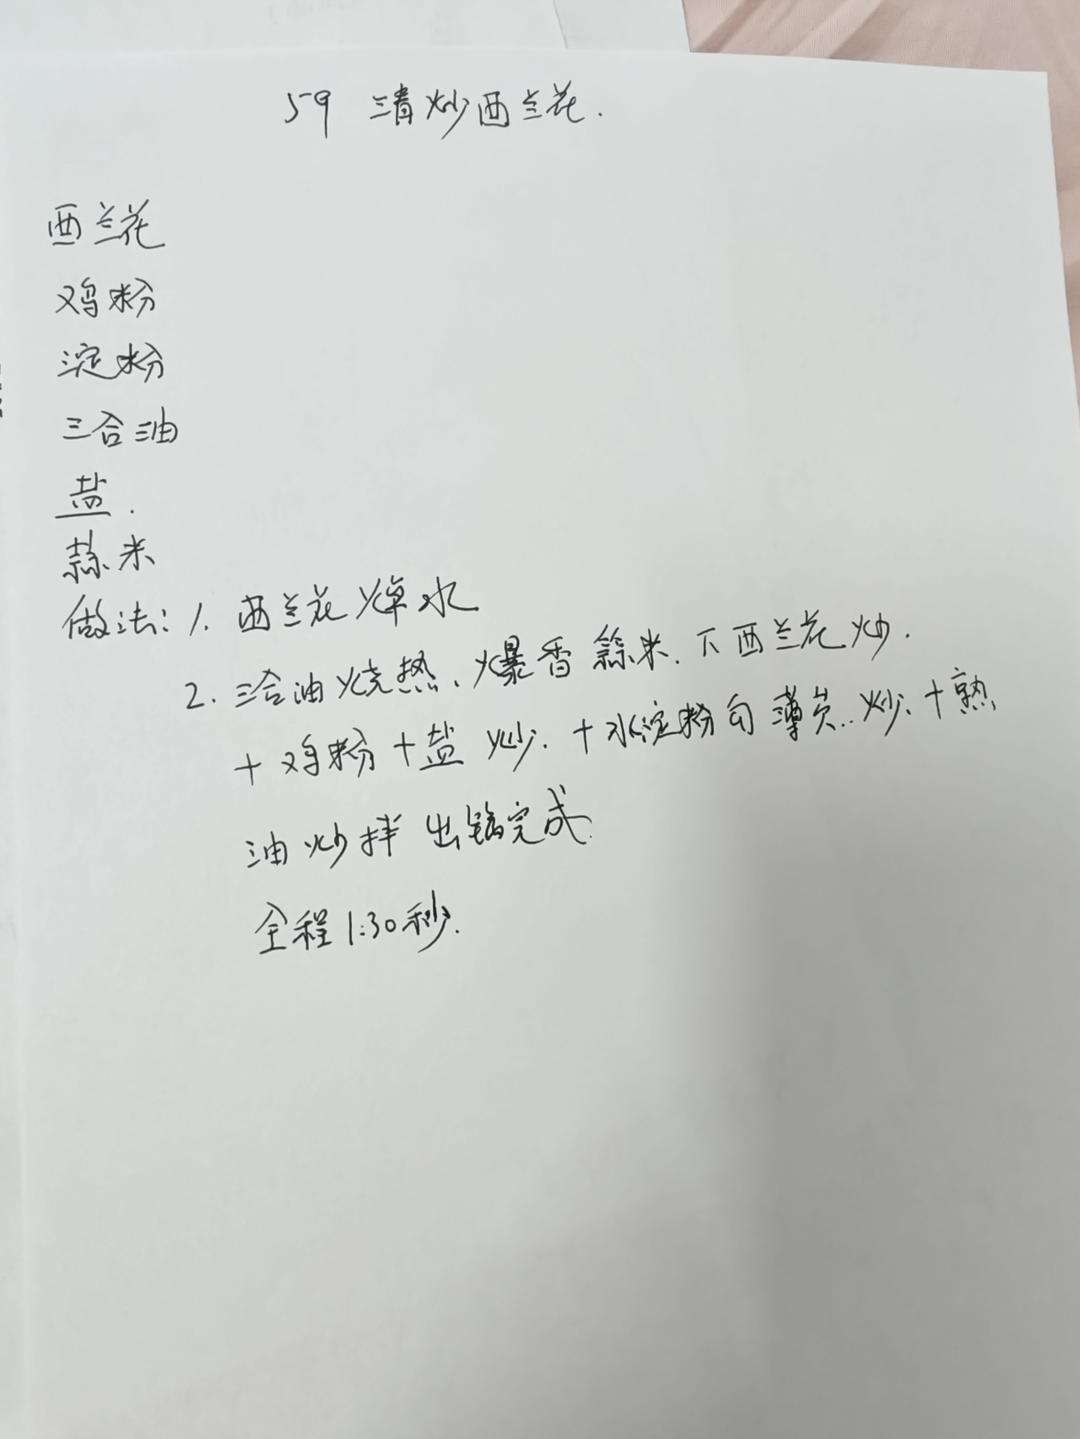 59 清炒西兰花.
西兰花
鸡粉
淀粉
三合油
盐.
蒜米
做法: 1. 西兰花焯水
2. 三合油烧热、爆香蒜米. 下西兰花炒.
+鸡粉+盐炒. +水淀粉勾薄芡..炒. +熟
油炒拌出锅完成.
全程1:30秒.